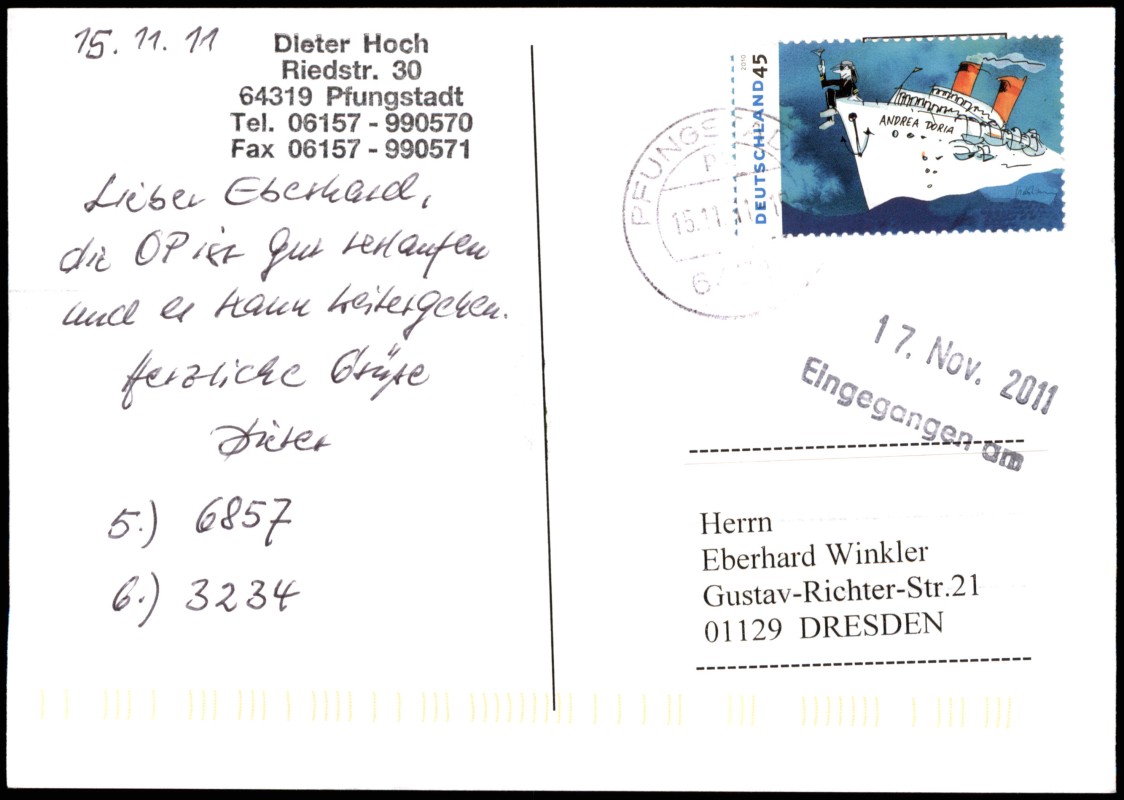 15.11.11
Dieter Hoch
Riedstr. 30
64319 Pfungstadt
Tel. 06157 - 990570
Fax 06157 - 990571
Lieber Eberhard,
die OP ist gut verlaufen
und es kann weitergehen.
Herzliche Grüße
Dieter
5.) 6857
6.) 3234
DEUTSCHLAND 45
2010
ANDREA DORIA
PFUNGS
15.11.11
17. Nov. 2011
Eingegangen am
Herrn
Eberhard Winkler
Gustav-Richter-Str.21
01129 DRESDEN